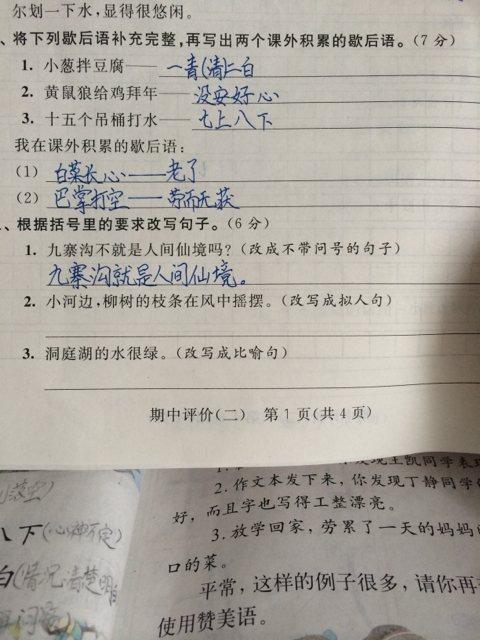 尔划一下水,显得很悠闲。
、将下列歇后语补充完整,再写出两个课外积累的歇后语。(7分)
1. 小葱拌豆腐——一青(清)二白
2. 黄鼠狼给鸡拜年——没安好心
3. 十五个吊桶打水——七上八下
我在课外积累的歇后语:
(1) 白菜长心——老了
(2) 巴掌打空——劳而无获
、根据括号里的要求改写句子。(6分)
1. 九寨沟不就是人间仙境吗?(改成不带问号的句子)
九寨沟就是人间仙境。
2. 小河边,柳树的枝条在风中摇摆。(改写成拟人句)
3. 洞庭湖的水很绿。(改写成比喻句)
期中评价(二) 第1页(共4页)
发现王凯同学表现
2. 作文本发下来,你发现丁静同学的
好,而且字也写得工整漂亮。
八下(心神不定)
3. 放学回家,劳累了一天的妈妈
白(情况清楚明白
口的菜。
平常,这样的例子很多,请你再
使用赞美语。